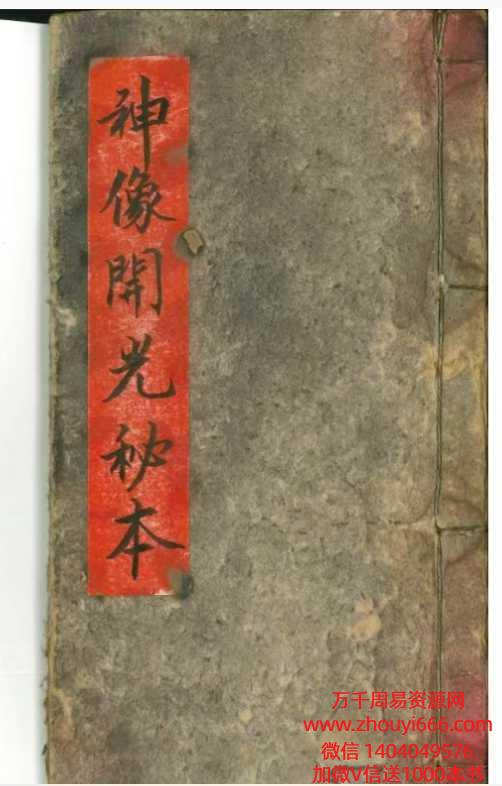 神像開光秘本
万千周易资源网
www.zhouyi666.com
微信 1404049576
加微V信送1000本书